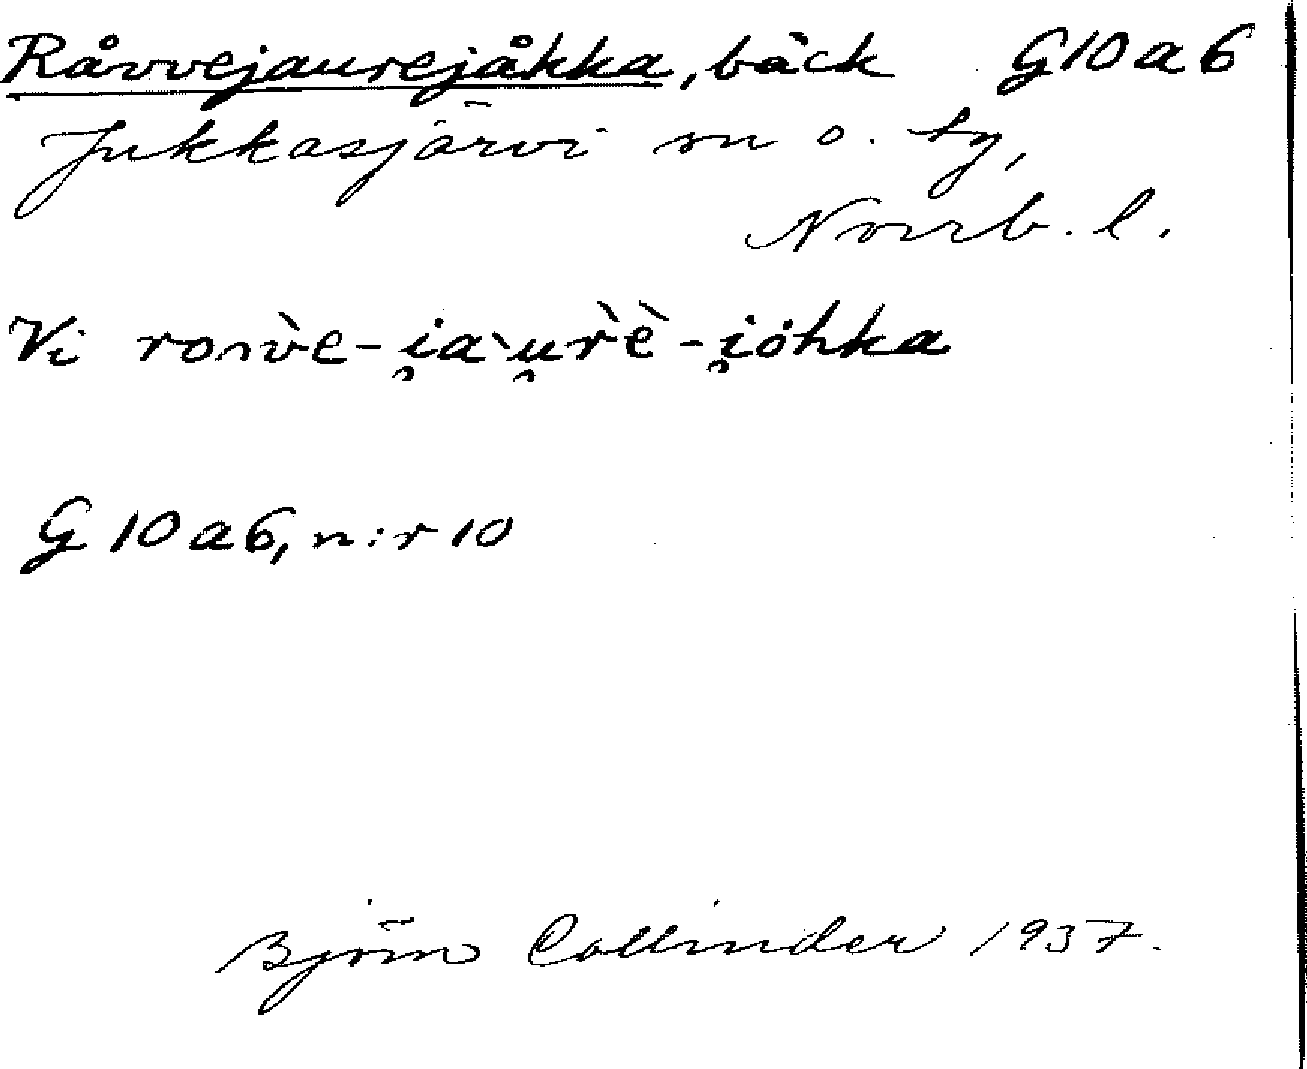 Råvvejaurejåkka, bäck G10a6
Jukkasjärvi sn o. tg,
Norrb. l.
Vi rovv̀e-i̯a`u̯r̀è-i̯öhka
G10a6, n:r 10
Björn Collinder 1937.